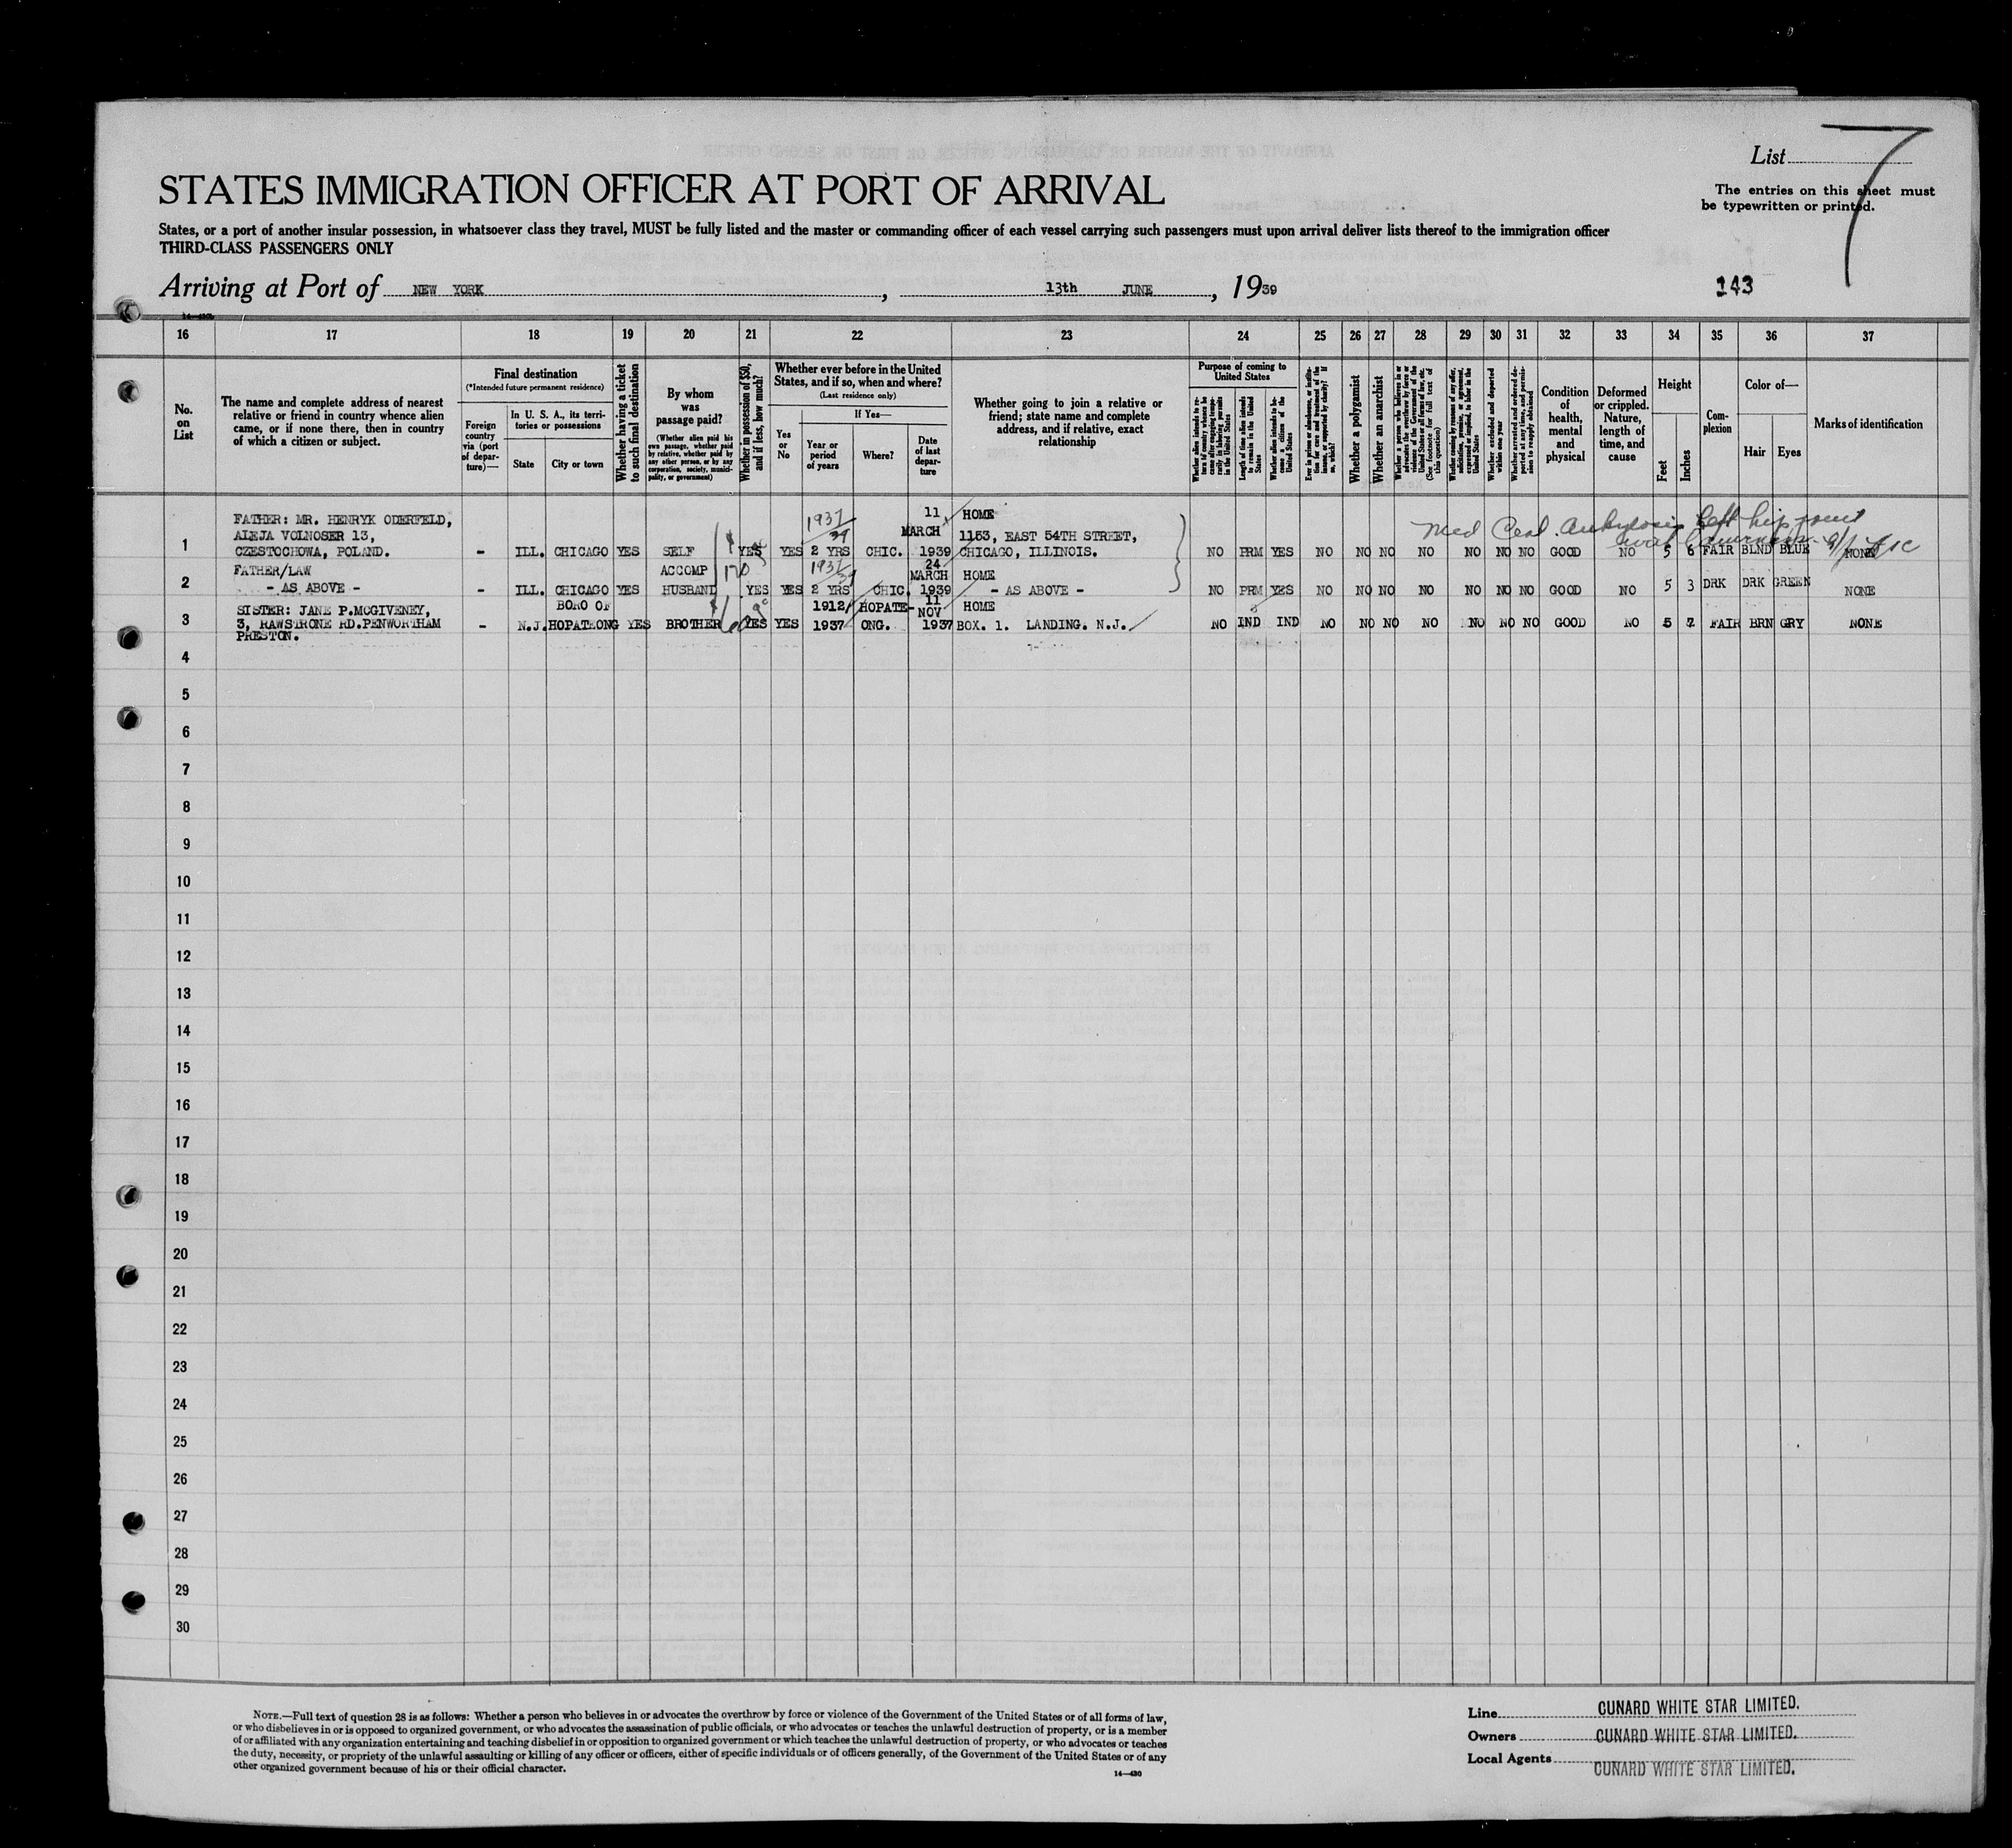 List 7
The entries on this sheet must
be typewritten or printed.
STATES IMMIGRATION OFFICER AT PORT OF ARRIVAL
States, or a port of another insular possession, in whatsoever class they travel, MUST be fully listed and the master or commanding officer of each vessel carrying such passengers must upon arrival deliver lists thereof to the immigration officer
THIRD-CLASS PASSENGERS ONLY
Arriving at Port of NEW YORK, 13th JUNE, 1939
143
16 17 18 19 20 21 22 23 24 25 26 27 28 29 30 31 32 33 34 35 36 37
No.
on
List
The name and complete address of nearest
relative or friend in country whence alien
came, or if none there, then in country
of which a citizen or subject.
Final destination
(*Intended future permanent residence)
Foreign
country
via (port
of depar-
ture)—
In U. S. A., its terri-
tories or possessions
State
City or town
Whether having a ticket
to such final destination
By whom
was
passage paid?
(Whether alien paid his
own passage, whether paid
by relative, whether paid by
any other person, or by any
corporation, society, munici-
pality, or government)
Whether in possession of $50,
and if less, how much?
Whether ever before in the United
States, and if so, when and where?
(Last residence only)
Yes
or
No
If Yes—
Year or
period
of years
Where?
Date
of last
depar-
ture
Whether going to join a relative or
friend; state name and complete
address, and if relative, exact
relationship
Purpose of coming to
United States
Length of time alien intends
to remain in the United
States
Whether alien intends to be-
come a citizen of the
United States
Whether a polygamist
Whether an anarchist
Whether excluded and deported
within one year
Condition
of
health,
mental
and
physical
Deformed
or crippled.
Nature,
length of
time, and
cause
Height
Feet
Inches
Com-
plexion
Color of—
Hair
Eyes
Marks of identification
Med Cert. Ankylosis left hip joint
FATHER: MR. HENRYK ODERFELD,
ALEJA VOLNOSER 13,
1937/39 11 MARCH HOME
1153, EAST 54TH STREET,
1 CZESTOCHOWA, POLAND. - ILL. CHICAGO YES SELF YES YES 2 YRS CHIC. 1939 CHICAGO, ILLINOIS. NO PRM YES NO NO NO NO NO NO NO GOOD NO 5 6 FAIR BLND BLUE NONE
FATHER/LAW ACCOMP 170 1937/39 24 MARCH HOME
2 - AS ABOVE - - ILL. CHICAGO YES HUSBAND YES YES 2 YRS CHIC. 1939 - AS ABOVE - NO PRM YES NO NO NO NO NO NO NO GOOD NO 5 3 DRK DRK GREEN NONE
SISTER: JANE P.MCGIVENEY, BORO OF 1912/ HOPATC- 11 NOV HOME
3 3, RAWSTRONE RD.PENWORTHAM - N.J. HOPATCONG YES BROTHER YES YES 1937 ONG. 1937 BOX. 1. LANDING. N.J. NO IND IND NO NO NO NO NO NO NO GOOD NO 5 7 FAIR BRN GRY NONE
PRESTON.
4
5
6
7
8
9
10
11
12
13
14
15
16
17
18
19
20
21
22
23
24
25
26
27
28
29
30
NOTE.—Full text of question 28 is as follows: Whether a person who believes in or advocates the overthrow by force or violence of the Government of the United States or of all forms of law,
or who disbelieves in or is opposed to organized government, or who advocates the assassination of public officials, or who advocates or teaches the unlawful destruction of property, or is a member
of or affiliated with any organization entertaining and teaching disbelief in or opposition to organized government or which teaches the unlawful destruction of property, or who advocates or teaches
the duty, necessity, or propriety of the unlawful assaulting or killing of any officer or officers, either of specific individuals or of officers generally, of the Government of the United States or of any
other organized government because of his or their official character.
14—430
Line CUNARD WHITE STAR LIMITED.
Owners CUNARD WHITE STAR LIMITED.
Local Agents CUNARD WHITE STAR LIMITED.